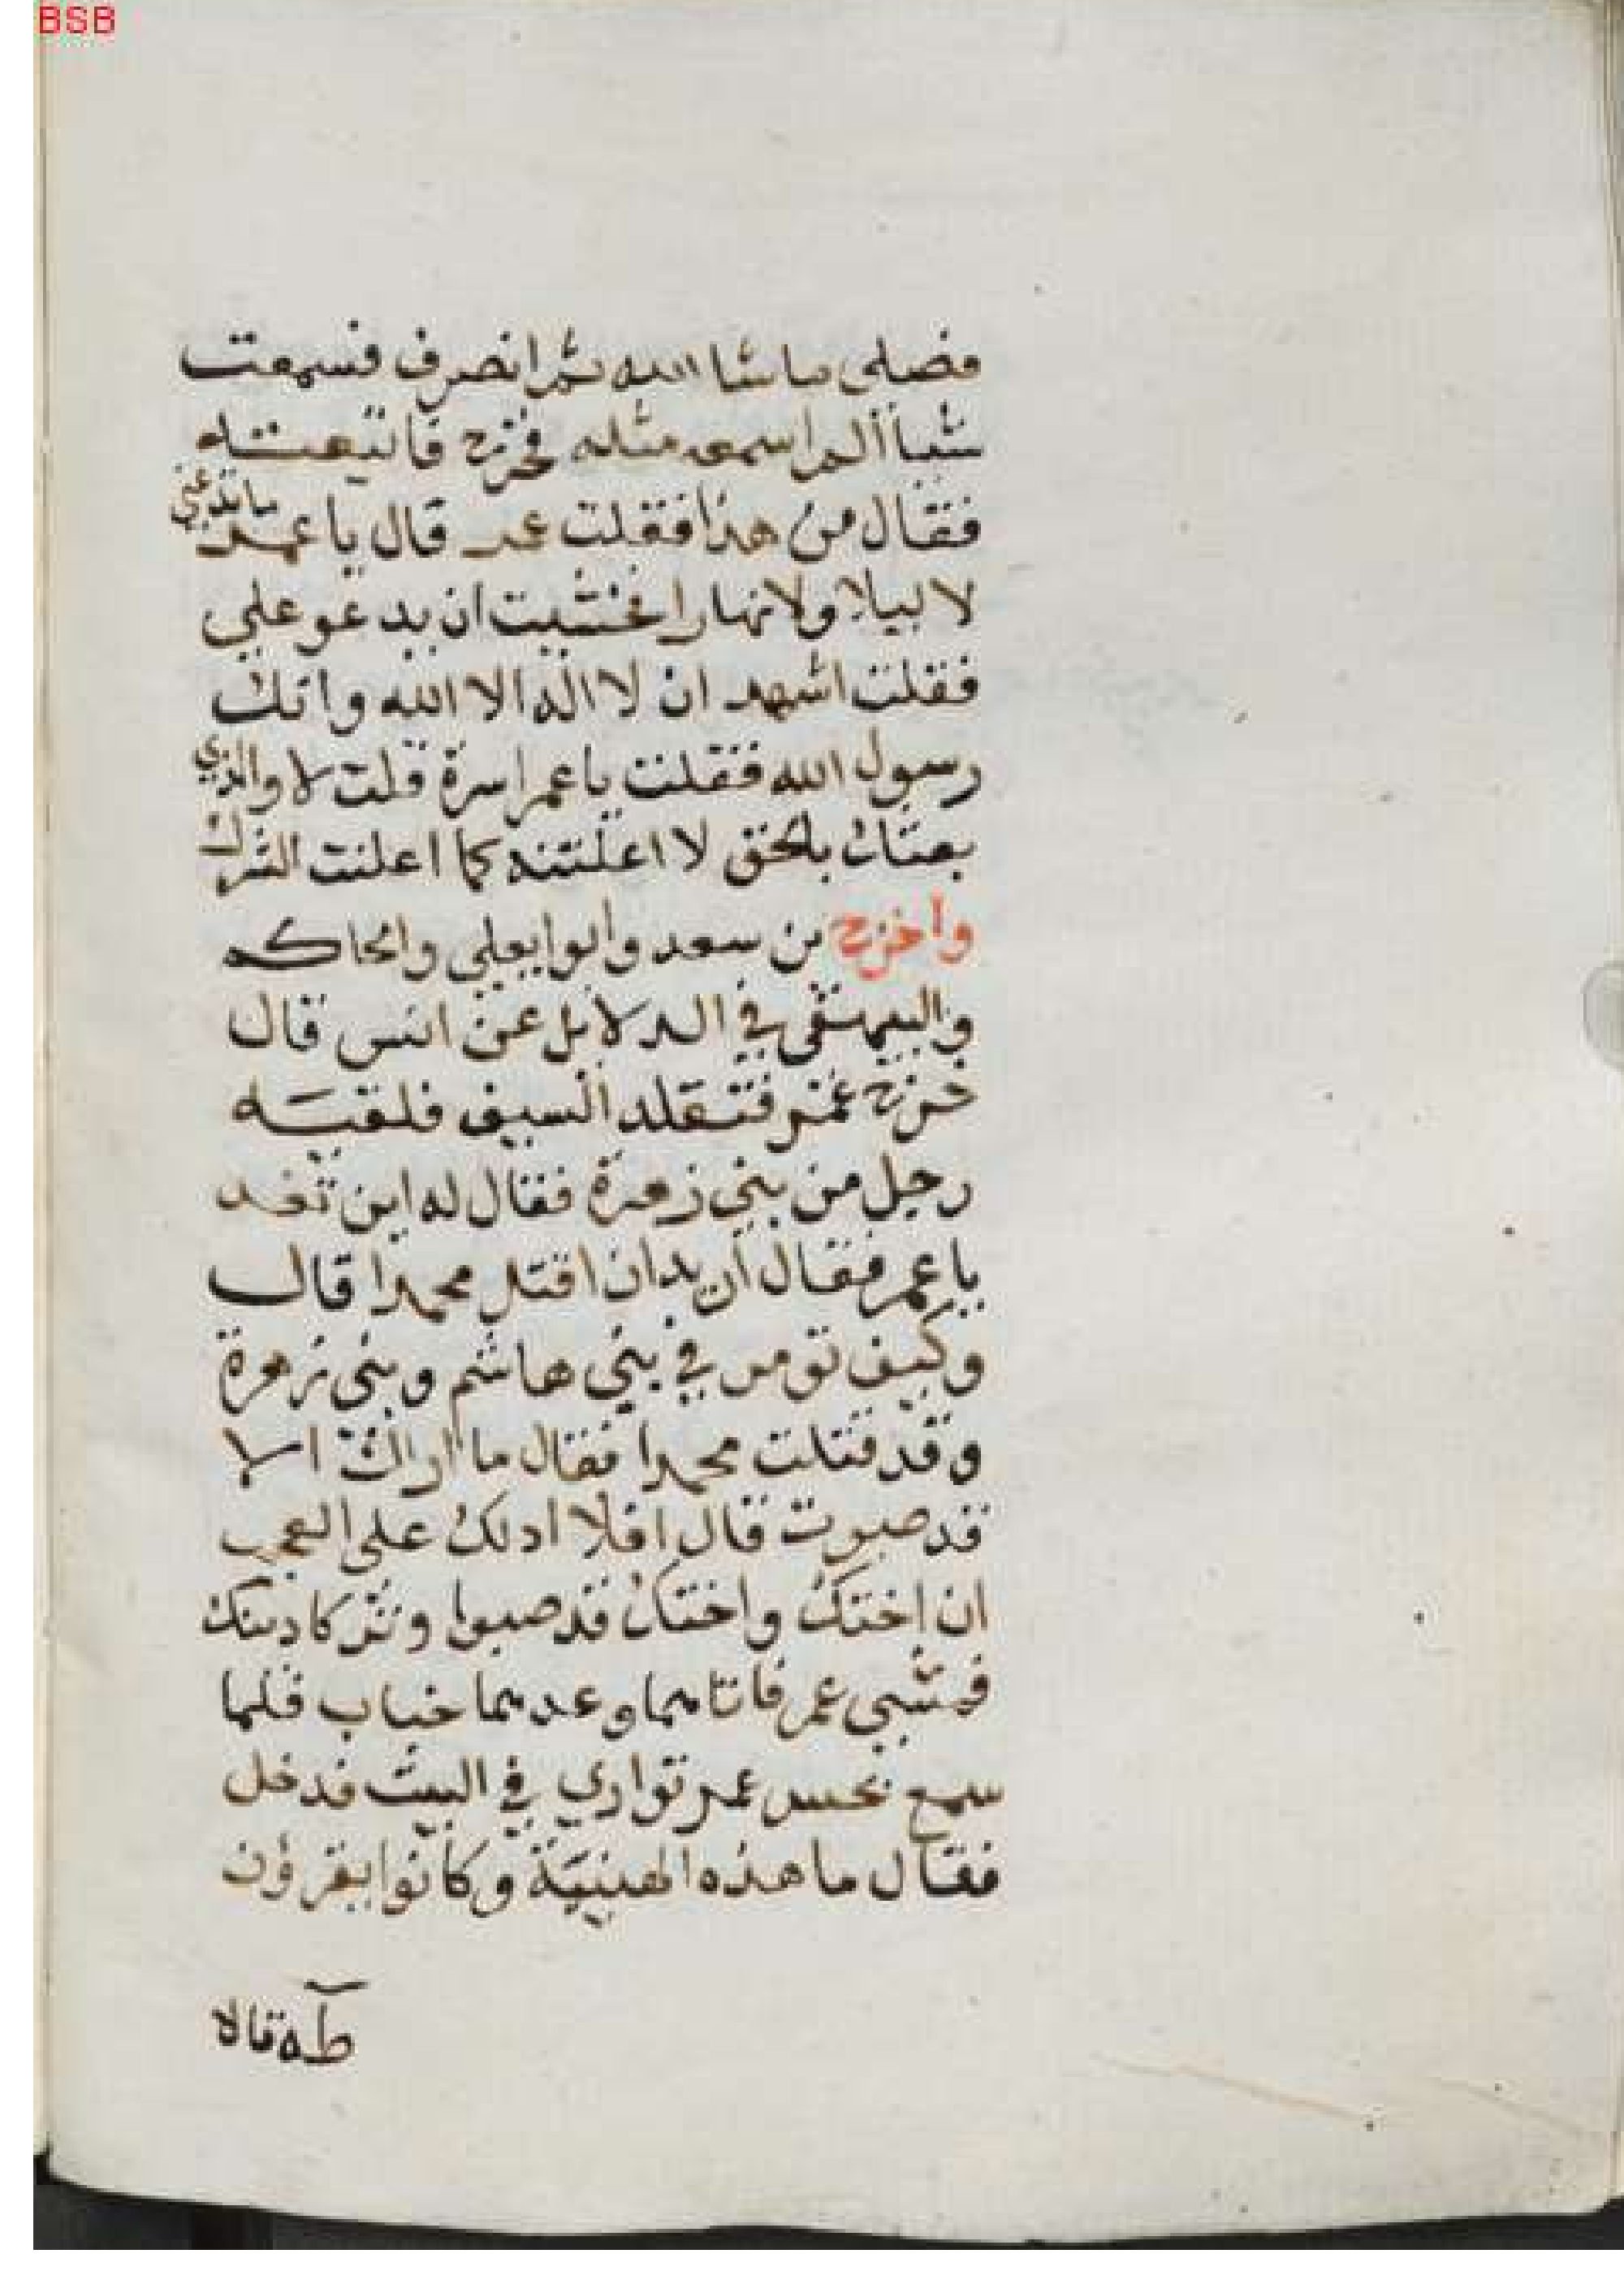 BSB
فصلى ما شا الله ثم انصرف فسمعت
شياألم اسمع مثله فخرج فاتبعته
فقال من هذا فقلت عمر قال يا عمر ما تدعني
لا ليلا ولا نهارا فخشيت ان يدعو علي
فقلت اشهد ان لا اله الا الله وانك
رسول الله فقلت يا عمر اسرة قلت لا والذي
بعثك بالحق لا اعلنته كما اعلنت الشرك
وأخرج بن سعد وابوا يعلي والحاكم
والبيهقي في الدلايل عن انس قال
خرج عمر فتقلد السيف فلقيه
رجل من بني زهرة فقال له اين تغد
يا عمر فقال أريد ان اقتل محمدا قال
وكيف تومن في بني هاشم وبني زهرة
وقد قتلت محمدا فقال ما اراك الا
قد صبوت قال افلا ادلك على العجب
ان اختك واختك قد صبوا وتركا دينك
فمشي عمر فاتاهما وعندهما خباب فلما
سمع بحس عمر تواري في البيت فدخل
فقال ما هذه الهينية وكانوا يقرؤن
طه قالا